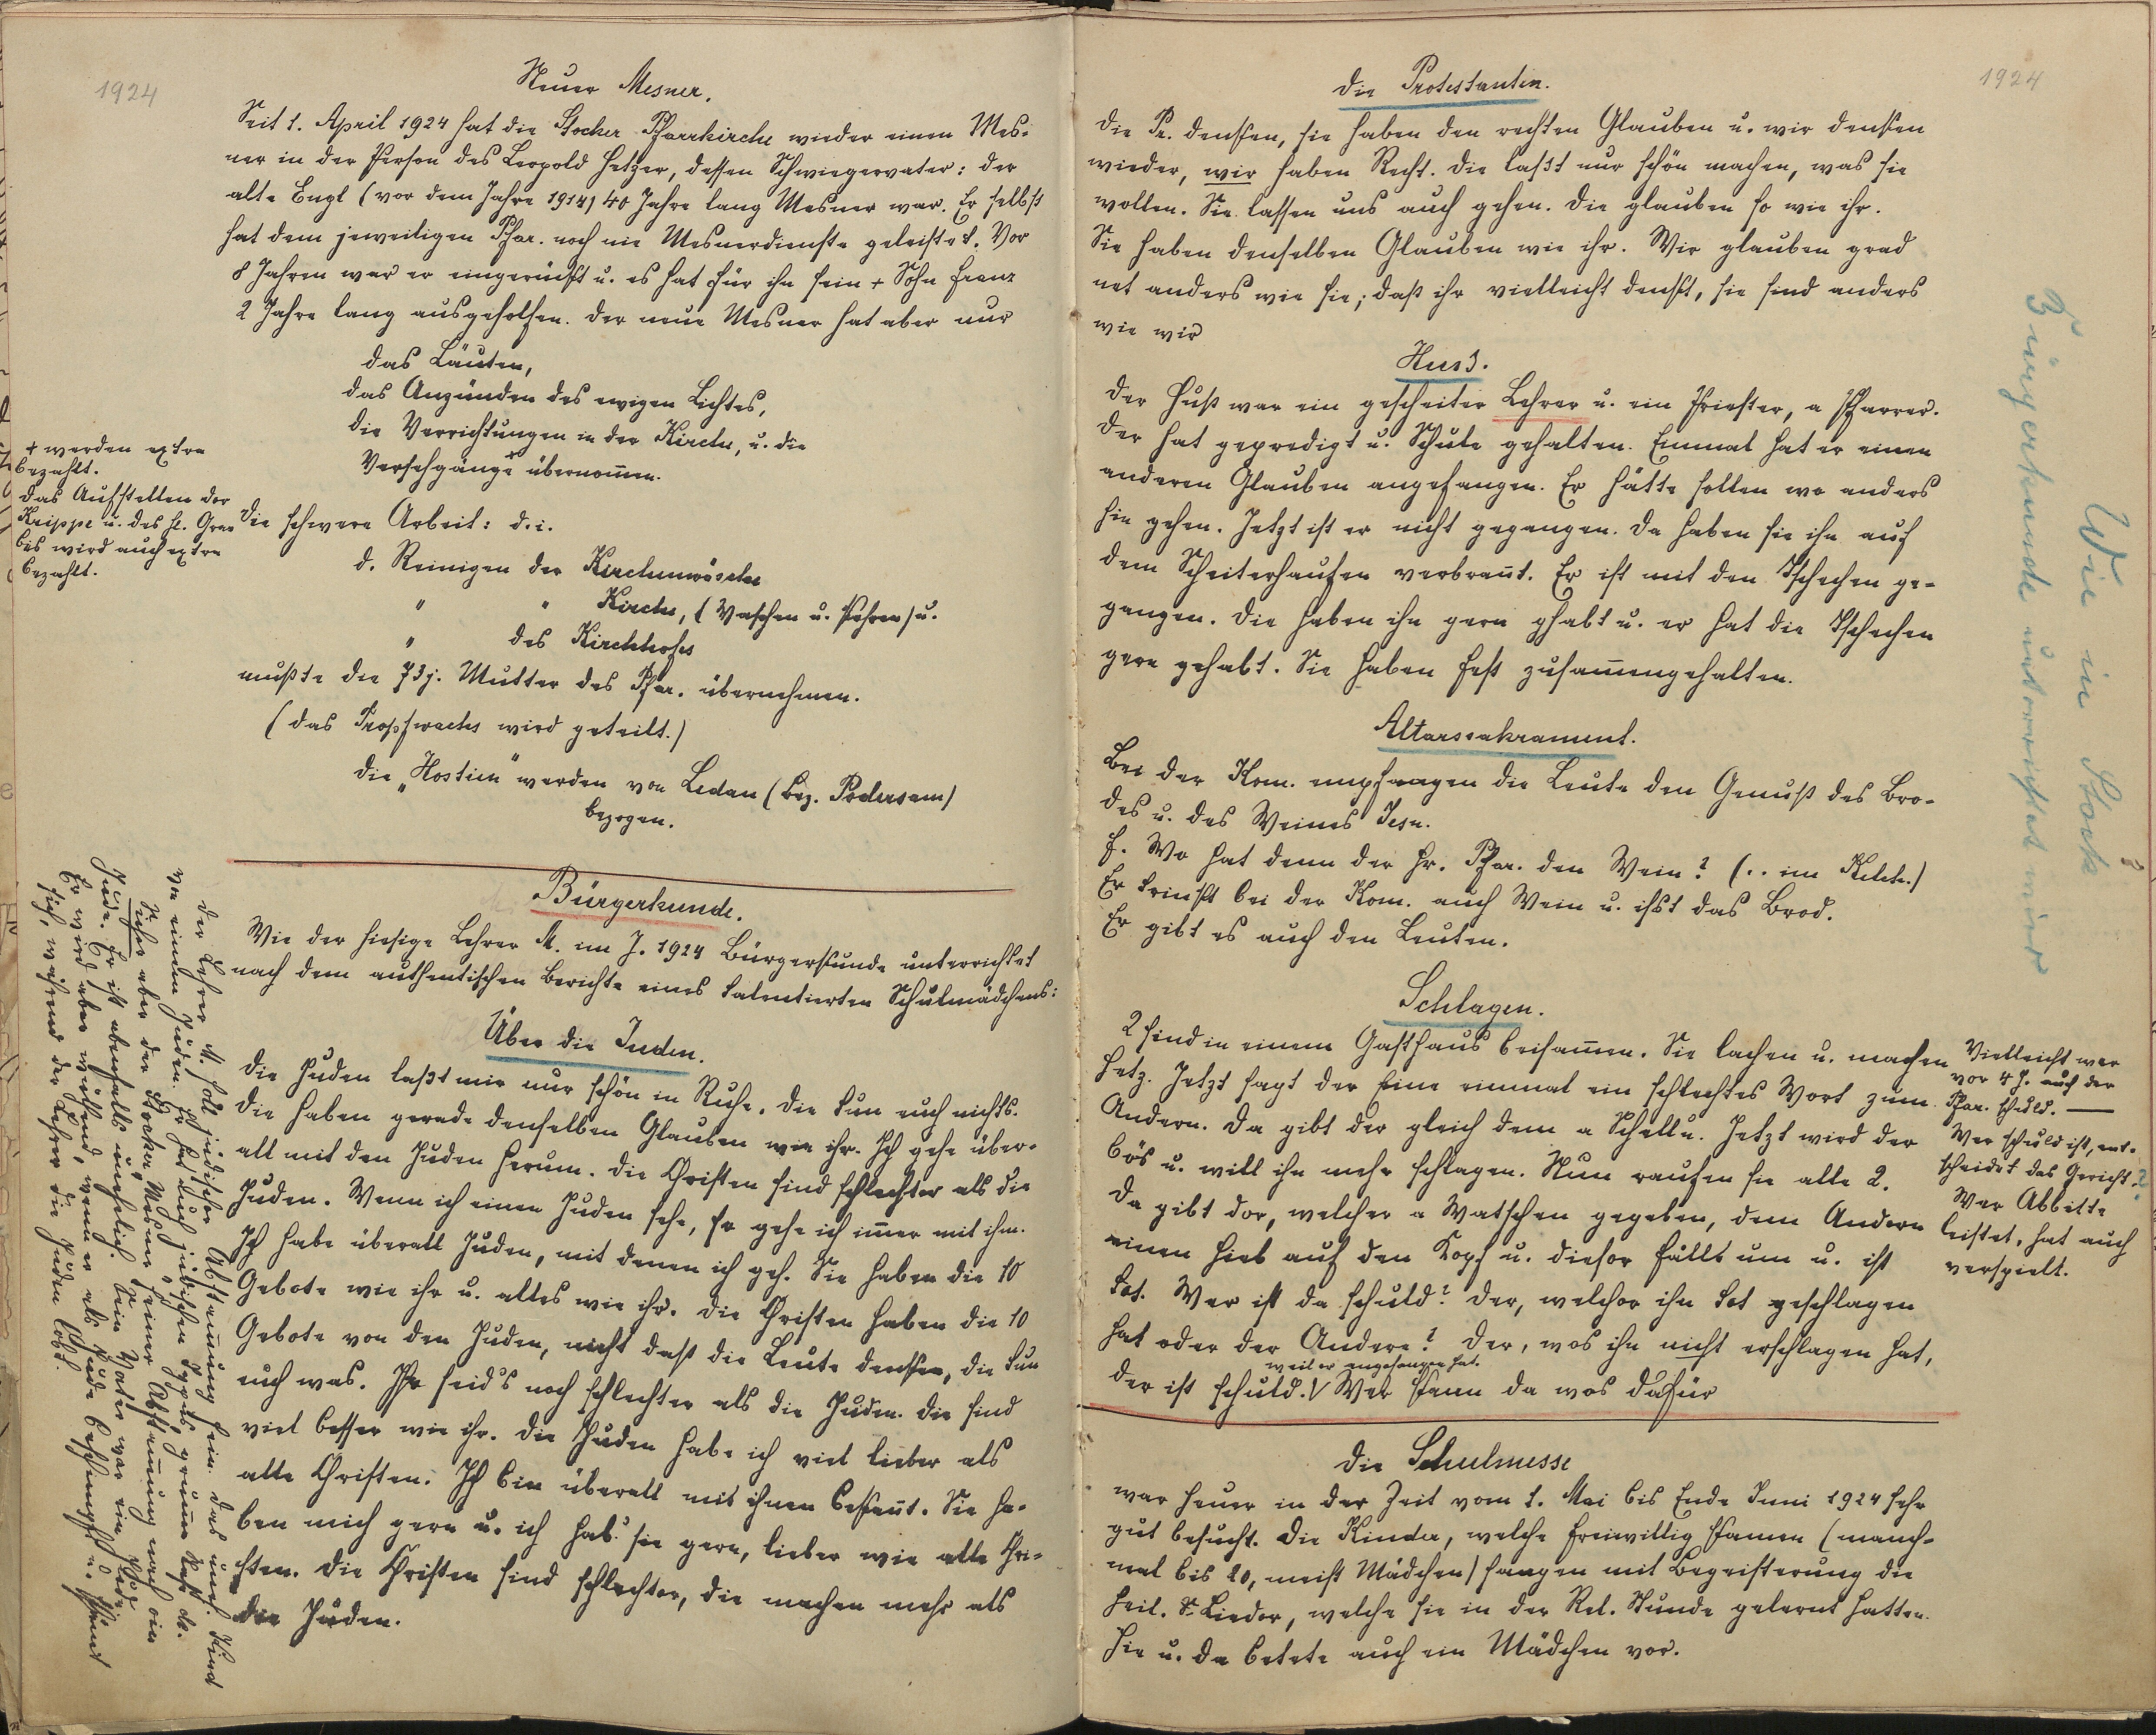 1924
Neuer Mesner.
Seit 1. April 1924 hat die Stocker Pfarrkirche wieder einen Mes-
ner in der Person des Leopold Hetzer, dessen Schwiegervater: der
alte Engl (vor dem Jahre 1914) 40 Jahre lang Mesner war. Er selbst
hat dem jeweiligen Pfar. noch nie Mesnerdienste geleistet. Vor
8 Jahren war er eingerückt u. es hat für ihn sein + Sohn Franz
2 Jahre lang ausgeholfen. Der neue Mesner hat aber nur
das Läuten,
das Anzünden des ewigen Lichtes,
die Verrichtungen in der Kirche, u. die
Versehgänge+ übernom̄en.
+ werden extra
bezahlt.
Das Aufstellen der
Krippe u. des hl. Gra-
bes wird auch extra
bezahlt.
Die schwere Arbeit: d. i.
d. Reinigen der Kirchenwäsche
" " Kirche, (Waschen u. Kehren) u.
" des Kirchhofes
mußte die 73j. Mutter des Pfar. übernehmen.
(Das Tropfwachs wird geteilt.)
Die „Hostien" werden von Ledau (Bez. Podersam)
bezogen.
Bürgerkunde.
Wie der hiesige Lehrer M. im J. 1924 Bürgerkunde unterrichtet
nach dem authentischen Berichte eines talentierten Schulmädchens:
Über die Juden.
Die Juden laßt mir nur schön in Ruhe. Die tun euch nichts.
Die haben gerade denselben Glauben wie ihr. Ich gehe über-
all mit den Juden herum. Die Christen sind schlechter als die
Juden. Wenn ich einen Juden sehe, so gehe ich im̄er mit ihm.
Ich habe überall Juden, mit denen ich geh. Sie haben die 10
Gebote wie ihr u. alles wie ihr. Die Christen haben die 10
Gebote von den Juden, nicht daß die Leute denken, die tun
euch was. Ihr seid's noch schlechter als die Juden. Die sind
viel besser wie ihr. Die Juden habe ich viel lieber als
alle Christen. Ich bin überall mit ihnen bekan̄t. Sie ha-
ben mich gern u. ich hab' sie gern, lieber wie alle Chri-
sten. Die Christen sind schlechter, die machen mehr als
die Juden.
Der Lehrer M. soll jüdischer Abstam̄ung sein. Das uneh. Kind
von einem Juden. Er hat auch jüdischen Typus,
Sicher aber der Stocker Mesner seiner Abstam̄ung nach ein
Jude. Er ist ebenfalls unehelich. Sein Vater war ein Jude
Er wird aber wütend, wenn er als Jude beschimpft u.
sich, während der Lehrer die Juden lobt.
1924
Die Protestanten.
Die Pr. denken, sie haben den rechten Glauben u. wir denken
wieder, wir haben Recht. Die laßt nur schön machen, was sie
wollen. Sie lassen uns auch gehen. Die glauben so wie ihr.
Sie haben denselben Glauben wie ihr. Wir glauben grad
net anders wie sie; daß ihr vielleicht denkt, sie sind anders
wie wir
Huss.
Der Huß war ein gescheiter Lehrer u. ein Priester, a Pfarrer.
Der hat gepredigt u. Schule gehalten. Einmal hat er einen
anderen Glauben angefangen. Er hätte sollen wo anders
hin gehen. Jetzt ist er nicht gegangen. Da haben sie ihn auf
dem Scheiterhaufen verbran̄t. Er ist mit den Tschechen ge-
gangen. Die haben ihn gern ghabt u. er hat die Tschechen
gern gehabt. Sie haben fest zusam̄engehalten.
Altarssakrament.
Bei der Kom. empfangen die Leute den Genuß des Bro-
des u. des Weines Jesu.
F. Wo hat denn der Hr. Pfar. den Wein? (.. im Kelch.)
Er trinkt bei der Kom. auch Wein u. ißt das Brod.
Er gibt es auch den Leuten.
Schlagen.
2 sind in einem Gasthaus beisam̄en. Sie lachen u. machen
Hetz. Jetzt sagt der Eine einmal ein schlechtes Wort zum
Andern. Da gibt der gleich dem a Schelln. Jetzt wird der
bös u. will ihn mehr schlagen. Nun raufen sie alle 2.
Da gibt der, welcher a Watschen gegeben, dem Andern
einen Hieb auf den Kopf u. dieser fällt um u. ist
tot. Wer ist da schuld? Der, welcher ihn tot geschlagen
hat oder der Andere? Der, wos ihn nicht erschlagen hat,
weil er angefangen hat.
der ist schuld. V Wer kann da wos dafür
Vielleicht war
vor 4 J. auch der
Pfar. schuld. —
Wer schuld ist, ent-
scheidet das Gericht. ?
Wer Abbitte
leistet, hat auch
verspielt.
Die Schulmesse
war heuer in der Zeit vom 1. Mai bis Ende Juni 1924 sehr
gut besucht. Die Kinder, welche freiwillig kamen (manch-
mal bis 20, meist Mädchen) sangen mit Begeisterung die
heil. Lieder, welche sie in der Rel. Stunde gelernt hatten.
Hie u. da betete auch ein Mädchen vor.
Wie in Stock
Bürgerkunde unterrichtet wird